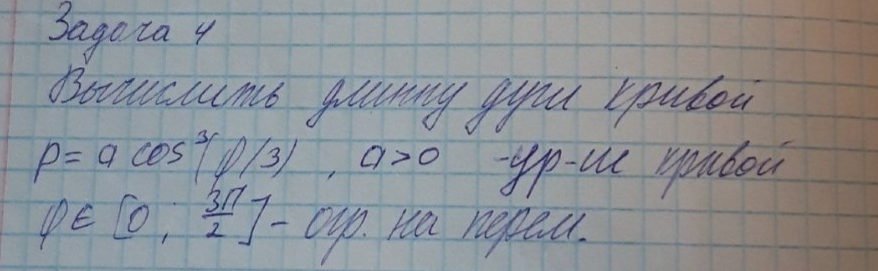 Задача 4
Вычислить длинну дуги кривой
ρ = a cos³(φ/3) , a>0 - ур-ие кривой
φ ∈ [0 ; 3π/2] - огр. на перем.